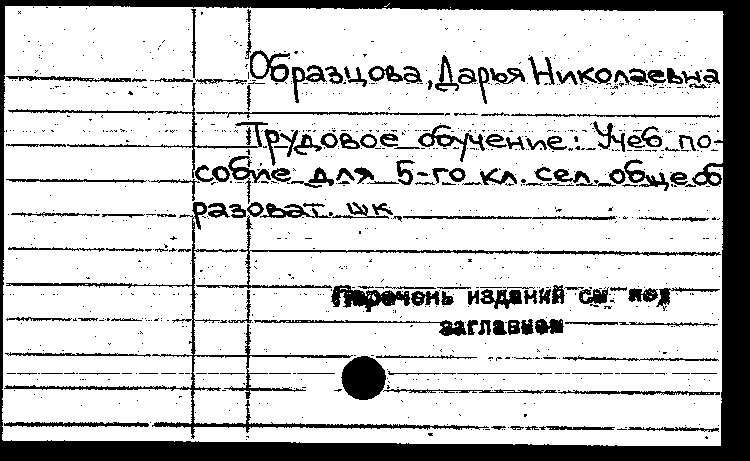 Образцова, Дарья Николаевна
Трудовое обучение: Учеб. по-
собие для 5-го кл. сел. общеоб
разоват. шк
Перечень изданий см. под
заглавием